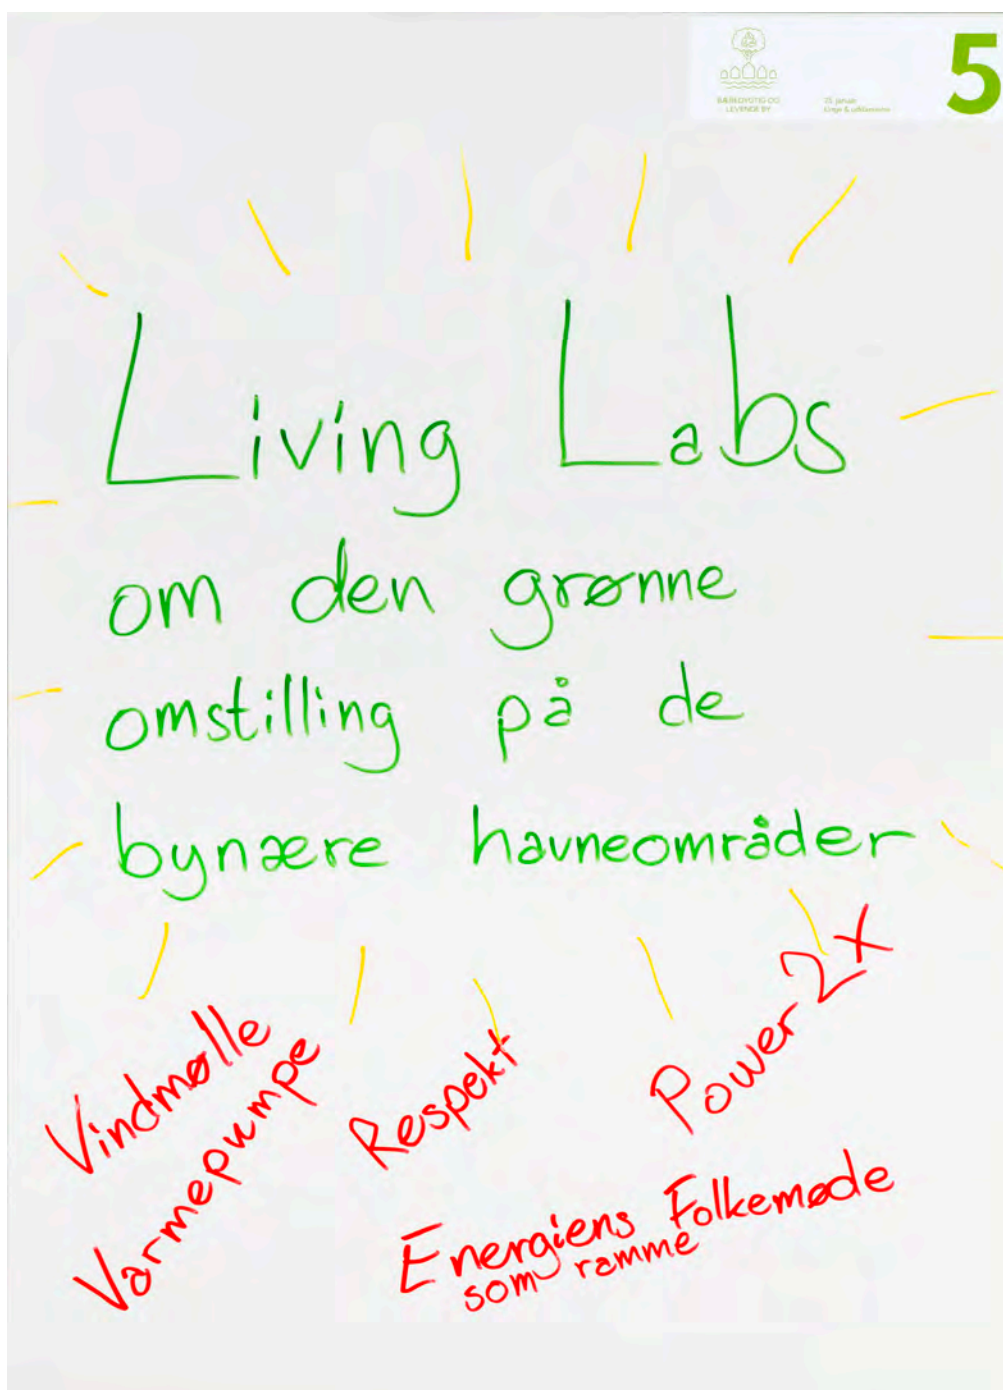 BÆREDYGTIG OG
LEVENDE BY
5
Living Labs
om den grønne
omstilling på de
bynære havneområder
Vindmølle
Varmepumpe
Respekt
Power 2X
Energiens Folkemøde
som ramme